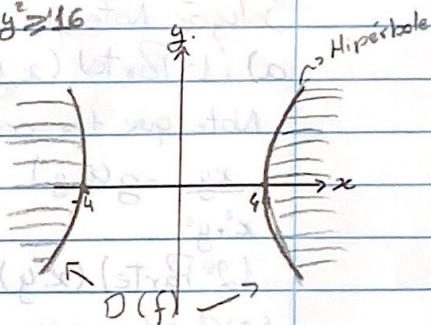 y² ≥ 16
y
Hipérbole
x
-4
4
D(f)